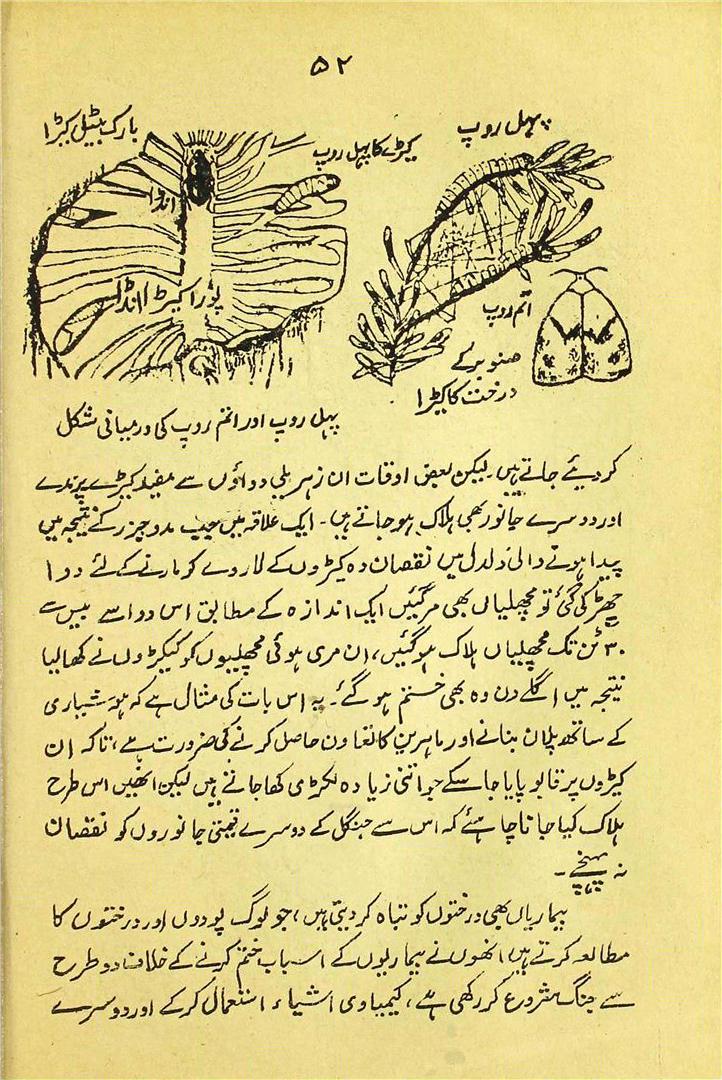 ۵۲
بارک بیٹیل کیڑا
کیڑے کا پہل روپ
پہل روپ
انڈا
پورا کیڑا انڈا
اتم روپ
صنوبر کے
درخت کا کیڑا
پہل روپ اور اتم روپ کی درمیانی شکل
کردیئے جاتے ہیں۔ لیکن بعض اوقات ان زہریلی دواؤں سے مفید کیڑے پرندے
اور دوسرے جانور بھی ہلاک ہوجاتے ہیں۔ ایک علاقہ میں جب مدوجزر کے نتیجہ میں
پیدا ہونے والی دلدل میں نقصان دہ کیڑوں کے لاروے کو مارنے کے لئے دوا
چھڑکی گئی تو مچھلیاں بھی مرگئیں ایک اندازہ کے مطابق اس دوا سے بیس سے
۳۰ ٹن تک مچھلیاں ہلاک ہوگئیں، ان مری ہوئی مچھلیوں کو کیکڑوں نے کھالیا
نتیجہ میں اگلے دن وہ بھی ختم ہوگئے۔ یہ اس بات کی مثال ہے کہ ہوشیاری
کے ساتھ پلان بنانے اور ماہرین کا تعاون حاصل کرنے کی ضرورت ہے، تاکہ ان
کیڑوں پر قابو پایا جاسکے جو اتنی زیادہ لکڑی کھاجاتے ہیں لیکن انھیں اس طرح
ہلاک کیا جانا چاہئے کہ اس سے جنگل کے دوسرے قیمتی جانوروں کو نقصان
نہ پہنچے۔
بیماریاں بھی درختوں کو تباہ کردیتی ہیں، جو لوگ پودوں اور درختوں کا
مطالعہ کرتے ہیں انھوں نے بیماریوں کے اسباب ختم کرنے کے خلاف دو طرح
سے جنگ شروع کر رکھی ہے، کیمیاوی اشیاء استعمال کرکے اور دوسرے